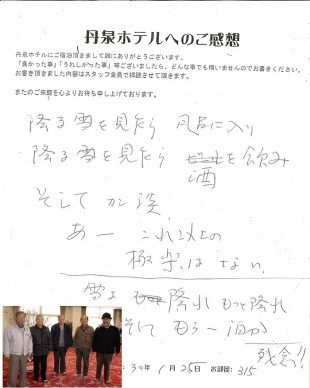 丹泉ホテルへのご感想
丹泉ホテルにご宿泊頂きまして誠にありがとうございます。
「良かった事」「うれしかった事」等ございましたら、どんな事でも構いませんのでお書きください。
お書き頂きました内容はスタッフ全員で拝読させて頂きます。
またのご来館を心よりお待ち申し上げております。
降る雪を見たら 風呂に入り
降る雪を見たら 酒を飲み
そして カン談
あー これ以上の
極楽はない
雪よ 降れ もっと降れ
そして もう一泊
残念!!
:30年 1月 25日 お部屋: 315